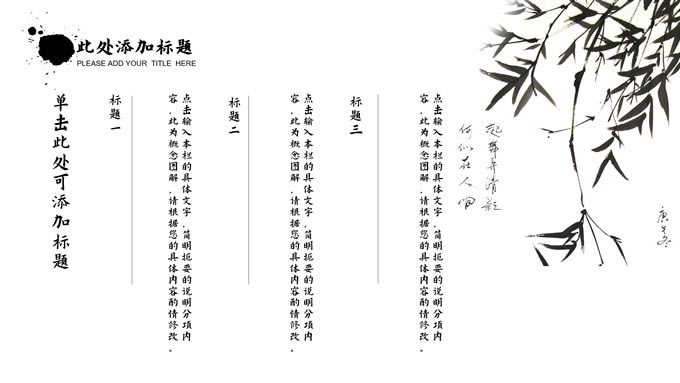 此处添加标题
PLEASE ADD YOUR TITLE HERE
单击此处可添加标题
标题一
点击输入本栏的具体文字，简明扼要的说明分项内
容，此为概念图解，请根据您的具体内容酌情修改。
标题二
点击输入本栏的具体文字，简明扼要的说明分项内
容，此为概念图解，请根据您的具体内容酌情修改。
标题三
点击输入本栏的具体文字，简明扼要的说明分项内
容，此为概念图解，请根据您的具体内容酌情修改。
起舞弄清影
何似在人间